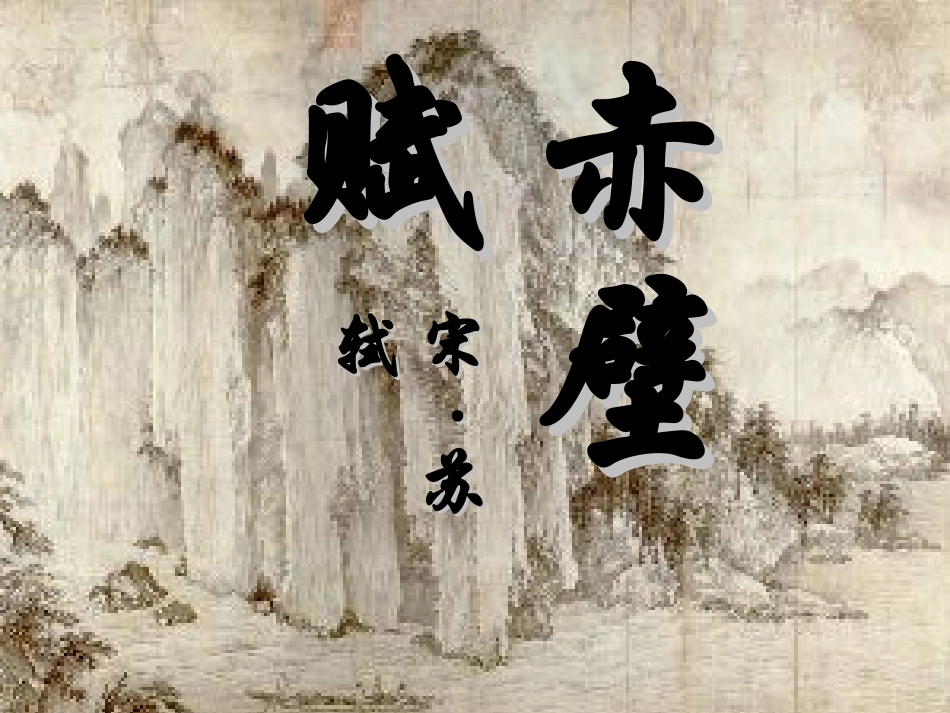 赤壁
赋
宋·苏
轼